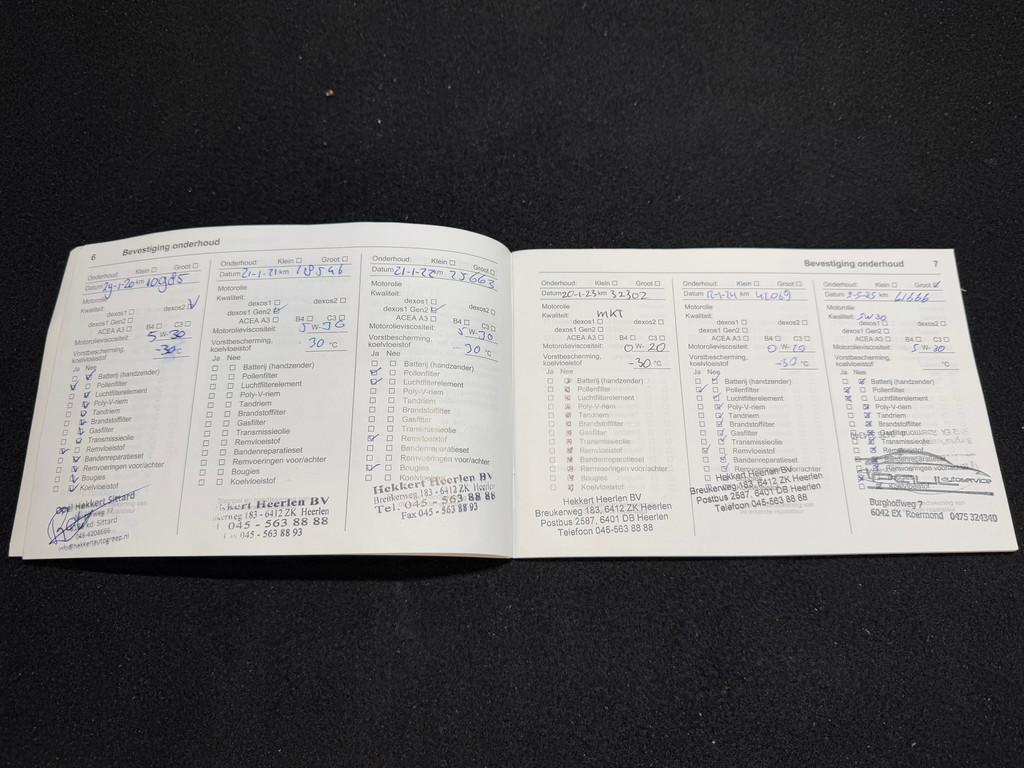 6 Bevestiging onderhoud
Onderhoud: Klein Groot
Datum 29-1-20 km 10985
Motorolie
Kwaliteit:
dexos1 dexos2
dexos1 Gen2
ACEA A3 B4 C3
Motorolieviscositeit: 5 W-30
Vorstbescherming, koelvloeistof -30°C
Ja Nee
Batterij (handzender)
Pollenfilter
Luchtfilterelement
Poly-V-riem
Tandriem
Brandstoffilter
Gasfilter
Transmissieolie
Remvloeistof
Bandenreparatieset
Remvoeringen voor/achter
Bougies
Koelvloeistof
Opel Hekkert Sittard
Sittard
046-4208666
info@hekkertautogroep.nl
Onderhoud: Klein Groot
Datum 21-1-21 km 18546
Motorolie
Kwaliteit:
dexos1 dexos2
dexos1 Gen2
ACEA A3 B4 C3
Motorolieviscositeit: 5 W-30
Vorstbescherming, koelvloeistof 30 °C
Ja Nee
Batterij (handzender)
Pollenfilter
Luchtfilterelement
Poly-V-riem
Tandriem
Brandstoffilter
Gasfilter
Transmissieolie
Remvloeistof
Bandenreparatieset
Remvoeringen voor/achter
Bougies
Koelvloeistof
Hekkert Heerlen BV
183 - 6412 ZK Heerlen
045 - 563 88 88
045 - 563 88 93
Onderhoud: Klein Groot
Datum 21-1-22 km 25663
Motorolie
Kwaliteit:
dexos1 dexos2
dexos1 Gen2
ACEA A3 B4 C3
Motorolieviscositeit: 5 W-30
Vorstbescherming, koelvloeistof -30 °C
Ja Nee
Batterij (handzender)
Pollenfilter
Luchtfilterelement
Poly-V-riem
Tandriem
Brandstoffilter
Gasfilter
Transmissieolie
Remvloeistof
Bandenreparatieset
Remvoeringen voor/achter
Bougies
Koelvloeistof
Hekkert Heerlen BV
Breukerweg 183 - 6412 ZK Heerlen
Tel. 045 - 563 88 88
Fax 045 - 563 88 93
Bevestiging onderhoud 7
Onderhoud: Klein Groot
Datum 20-1-23 km 32302
Motorolie
Kwaliteit: MKT
dexos1 dexos2
dexos1 Gen2
ACEA A3 B4 C3
Motorolieviscositeit: 0 W-20
Vorstbescherming, koelvloeistof -30 °C
Ja Nee
Batterij (handzender)
Pollenfilter
Luchtfilterelement
Poly-V-riem
Tandriem
Brandstoffilter
Gasfilter
Transmissieolie
Remvloeistof
Bandenreparatieset
Remvoeringen voor/achter
Bougies
Koelvloeistof
Hekkert Heerlen BV
Breukerweg 183, 6412 ZK Heerlen
Postbus 2587, 6401 DB Heerlen
Telefoon 045-563 88 88
Onderhoud: Klein Groot
Datum 12-1-24 km 42069
Motorolie
Kwaliteit:
dexos1 dexos2
dexos1 Gen2
ACEA A3 B4 C3
Motorolieviscositeit: 0 W-20
Vorstbescherming, koelvloeistof -30 °C
Ja Nee
Batterij (handzender)
Pollenfilter
Luchtfilterelement
Poly-V-riem
Tandriem
Brandstoffilter
Gasfilter
Transmissieolie
Remvloeistof
Bandenreparatieset
Remvoeringen voor/achter
Hekkert Heerlen BV
Breukerweg 183, 6412 ZK Heerlen
Postbus 2587, 6401 DB Heerlen
Telefoon 045-563 88 88
Onderhoud: Klein Groot
Datum km 61666
Motorolie
Kwaliteit: 5W30
dexos1 dexos2
dexos1 Gen2
ACEA A3 B4 C3
Motorolieviscositeit: 5 W-30
Vorstbescherming, koelvloeistof °C
Ja Nee
Batterij (handzender)
Pollenfilter
Luchtfilterelement
Poly-V-riem
Tandriem
Brandstoffilter
Gasfilter
Transmissieolie
Remvloeistof
Bandenreparatieset
Remvoeringen voor/achter
AUTOSERVICE
Burghoffweg 7
6042 EX Roermond 0475 324340